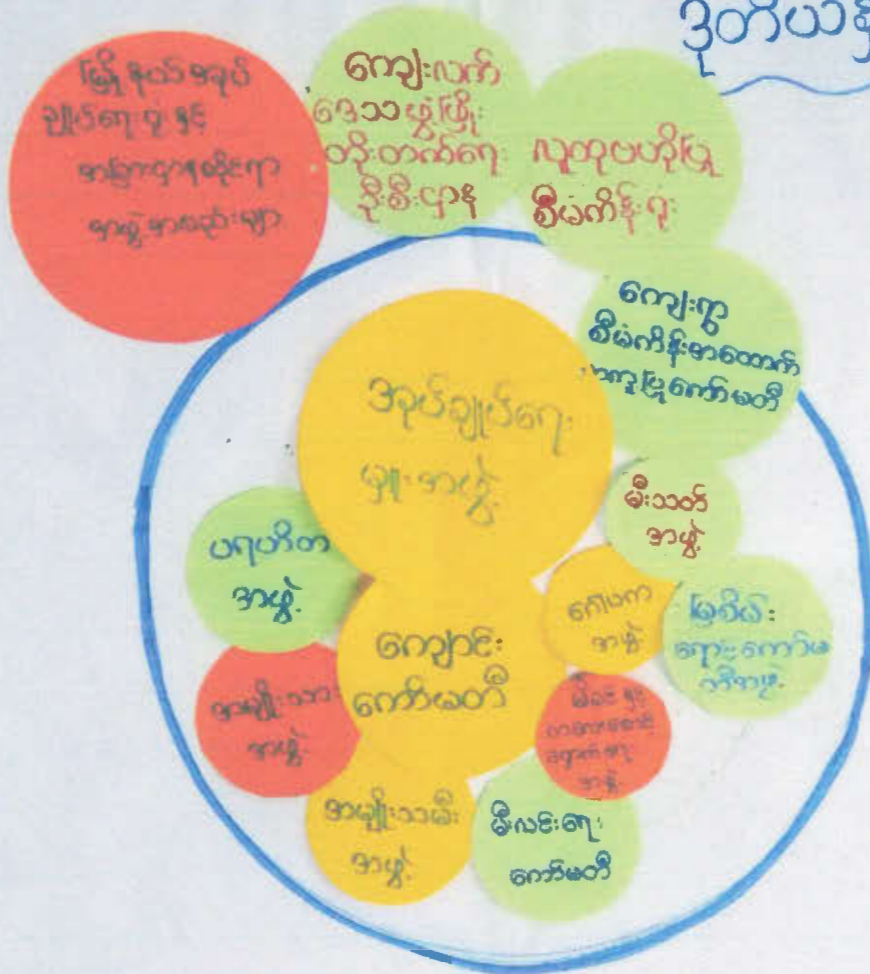 ဒုတိယ
မြို့နယ်အုပ်
ချုပ်ရေးမှူးနှင့်
အခြားဌာနဆိုင်ရာ
အဖွဲ့အစည်းများ
ကျေးလက်
ဒေသဖွံ့ဖြိုး
တိုးတက်ရေး
ဦးစီးဌာန
လူထုဗဟိုပြု
စီမံကိန်းရုံး
ကျေးရွာ
စီမံကိန်းအထောက်
အကူပြုကော်မတီ
အုပ်ချုပ်ရေး
မှူးအဖွဲ့
မီးသတ်
အဖွဲ့
ပရဟိတ
အဖွဲ့
ဂေါပက
အဖွဲ့
မြစိမ်း
ရောင်ကော်မ
တီအဖွဲ့
ကျောင်း
ကော်မတီ
အမျိုးသား
အဖွဲ့
မိခင်နှင့်
ကလေးစောင့်
ရှောက်ရေး
အဖွဲ့
အမျိုးသမီး
အဖွဲ့
မီးလင်းရေး
ကော်မတီ